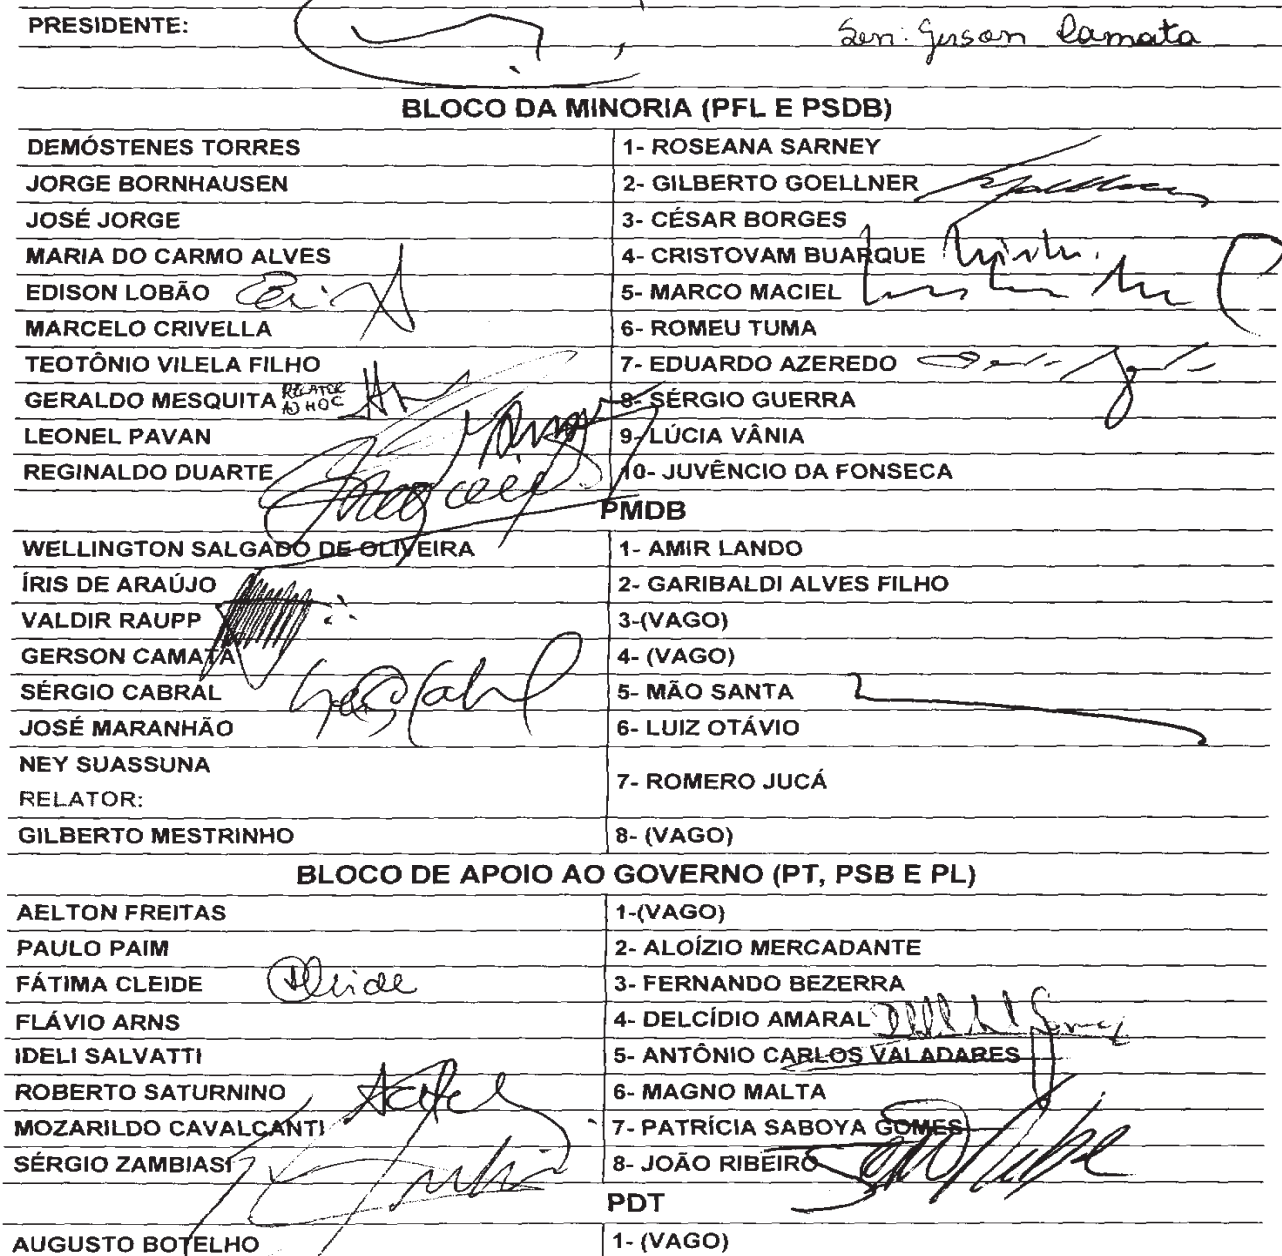 PRESIDENTE: Sen. Gerson Camata
BLOCO DA MINORIA (PFL E PSDB)
DEMÓSTENES TORRES 1- ROSEANA SARNEY
JORGE BORNHAUSEN 2- GILBERTO GOELLNER
JOSÉ JORGE 3- CÉSAR BORGES
MARIA DO CARMO ALVES 4- CRISTOVAM BUARQUE
EDISON LOBÃO 5- MARCO MACIEL
MARCELO CRIVELLA 6- ROMEU TUMA
TEOTÔNIO VILELA FILHO 7- EDUARDO AZEREDO
GERALDO MESQUITA RELATOR AD HOC 8- SÉRGIO GUERRA
LEONEL PAVAN 9- LÚCIA VÂNIA
REGINALDO DUARTE 10- JUVÊNCIO DA FONSECA
PMDB
WELLINGTON SALGADO DE OLIVEIRA 1- AMIR LANDO
ÍRIS DE ARAÚJO 2- GARIBALDI ALVES FILHO
VALDIR RAUPP 3-(VAGO)
GERSON CAMATA 4- (VAGO)
SÉRGIO CABRAL 5- MÃO SANTA
JOSÉ MARANHÃO 6- LUIZ OTÁVIO
NEY SUASSUNA
RELATOR: 7- ROMERO JUCÁ
GILBERTO MESTRINHO 8- (VAGO)
BLOCO DE APOIO AO GOVERNO (PT, PSB E PL)
AELTON FREITAS 1-(VAGO)
PAULO PAIM 2- ALOÍZIO MERCADANTE
FÁTIMA CLEIDE Cleide 3- FERNANDO BEZERRA
FLÁVIO ARNS 4- DELCÍDIO AMARAL
IDELI SALVATTI 5- ANTÔNIO CARLOS VALADARES
ROBERTO SATURNINO 6- MAGNO MALTA
MOZARILDO CAVALCANTI 7- PATRÍCIA SABOYA GOMES
SÉRGIO ZAMBIASI 8- JOÃO RIBEIRO
PDT
AUGUSTO BOTELHO 1- (VAGO)